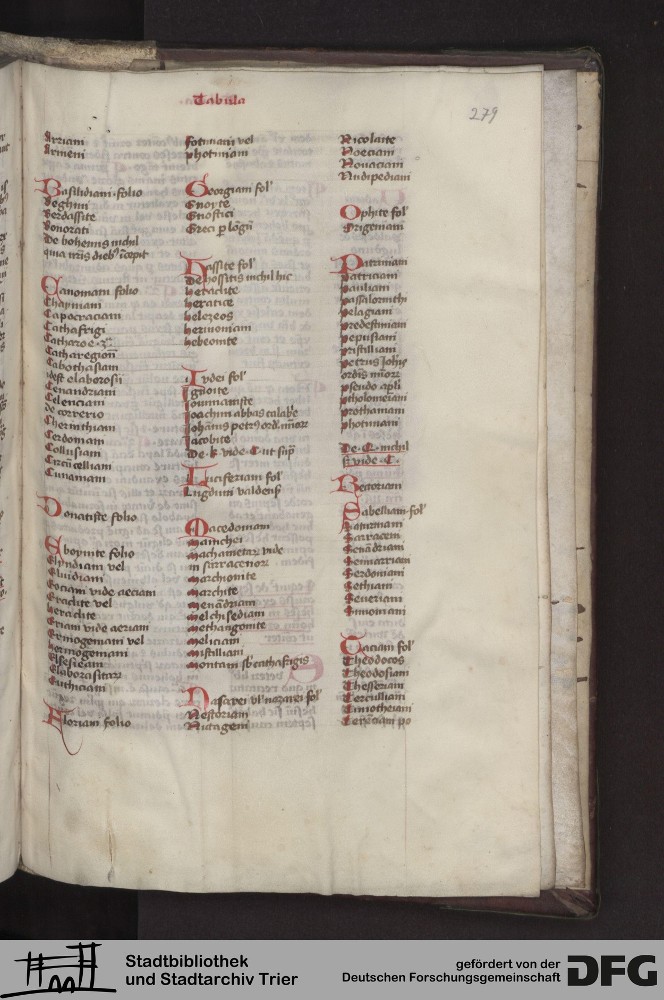 Tabula
279
Arriani
Armeni
Basilidiani folio
Beghini
Berdassite
Bonorati
De bohemis nichil
quia nris dieb' incepit
Canoniani folio
Chaymani
Capocraciani
Cathafrigi
Catharo
Catharegion
Cabothasiani
idest elaborosii
Cenandriani
Celenciani
de correrio
Cherinthiani
Cerdoniani
Collusiani
Circucelliani
Cunaniani
Donatiste folio
Eboynite folio
Elyndiani vel
Eluidiani
Eociani vide aeciani
Erachte vel
herachte
Eriani vide aeriani
Ermogeniani vel
hermogeniani
Elseseiani
Elaborasitare
Euthiciani
Floriani folio
fotiniani vel
photiniani
Georgiani fol'
Gnoyte
Gnostici
Greci p longu
Hassite fol'
De hossitis nichil hic
herachte
heratice
helezeos
hermoniani
hebeonite
Iudei fol'
Ignoite
Iouinianiste
Ioachim abbas calabe
Iohanis petrus ord minor
Iacobite
De k vide C ut sup
Luciferiani fol'
Lugduni valdens
Macedoniani
Manichei
machametar vide
in sarracenor
marchionite
marchite
menandriani
melchisediani
methangonite
meliciani
mistilliani
montani sb cathafrigis
Nasarei vl' nazarei fol'
Nestoriani
Nutageni
Nicolaite
Noeciani
Nouaciani
Nudipediani
Ophite fol'
Origeniani
Patriniani
patriciani
pauliani
passalorinthi
pelagiani
predestiniani
pepusiani
pristilliani
petrus Johis
ordis minor
pseudo apli
ptholomeiani
prothaniani
photiniani
De Q nichil
s vide C
Retoriani
Sabelliani fol'
Saturniani
Sarraceni
Senadriani
Semiarriani
Serdoniani
Sethiani
Seueriani
Simoniani
Taciani fol'
Theodocos
Theodosiani
Thesseriani
Terculliani
Timotheiani
Stadtbibliothek
und Stadtarchiv Trier
gefördert von der
Deutschen Forschungsgemeinschaft
DFG